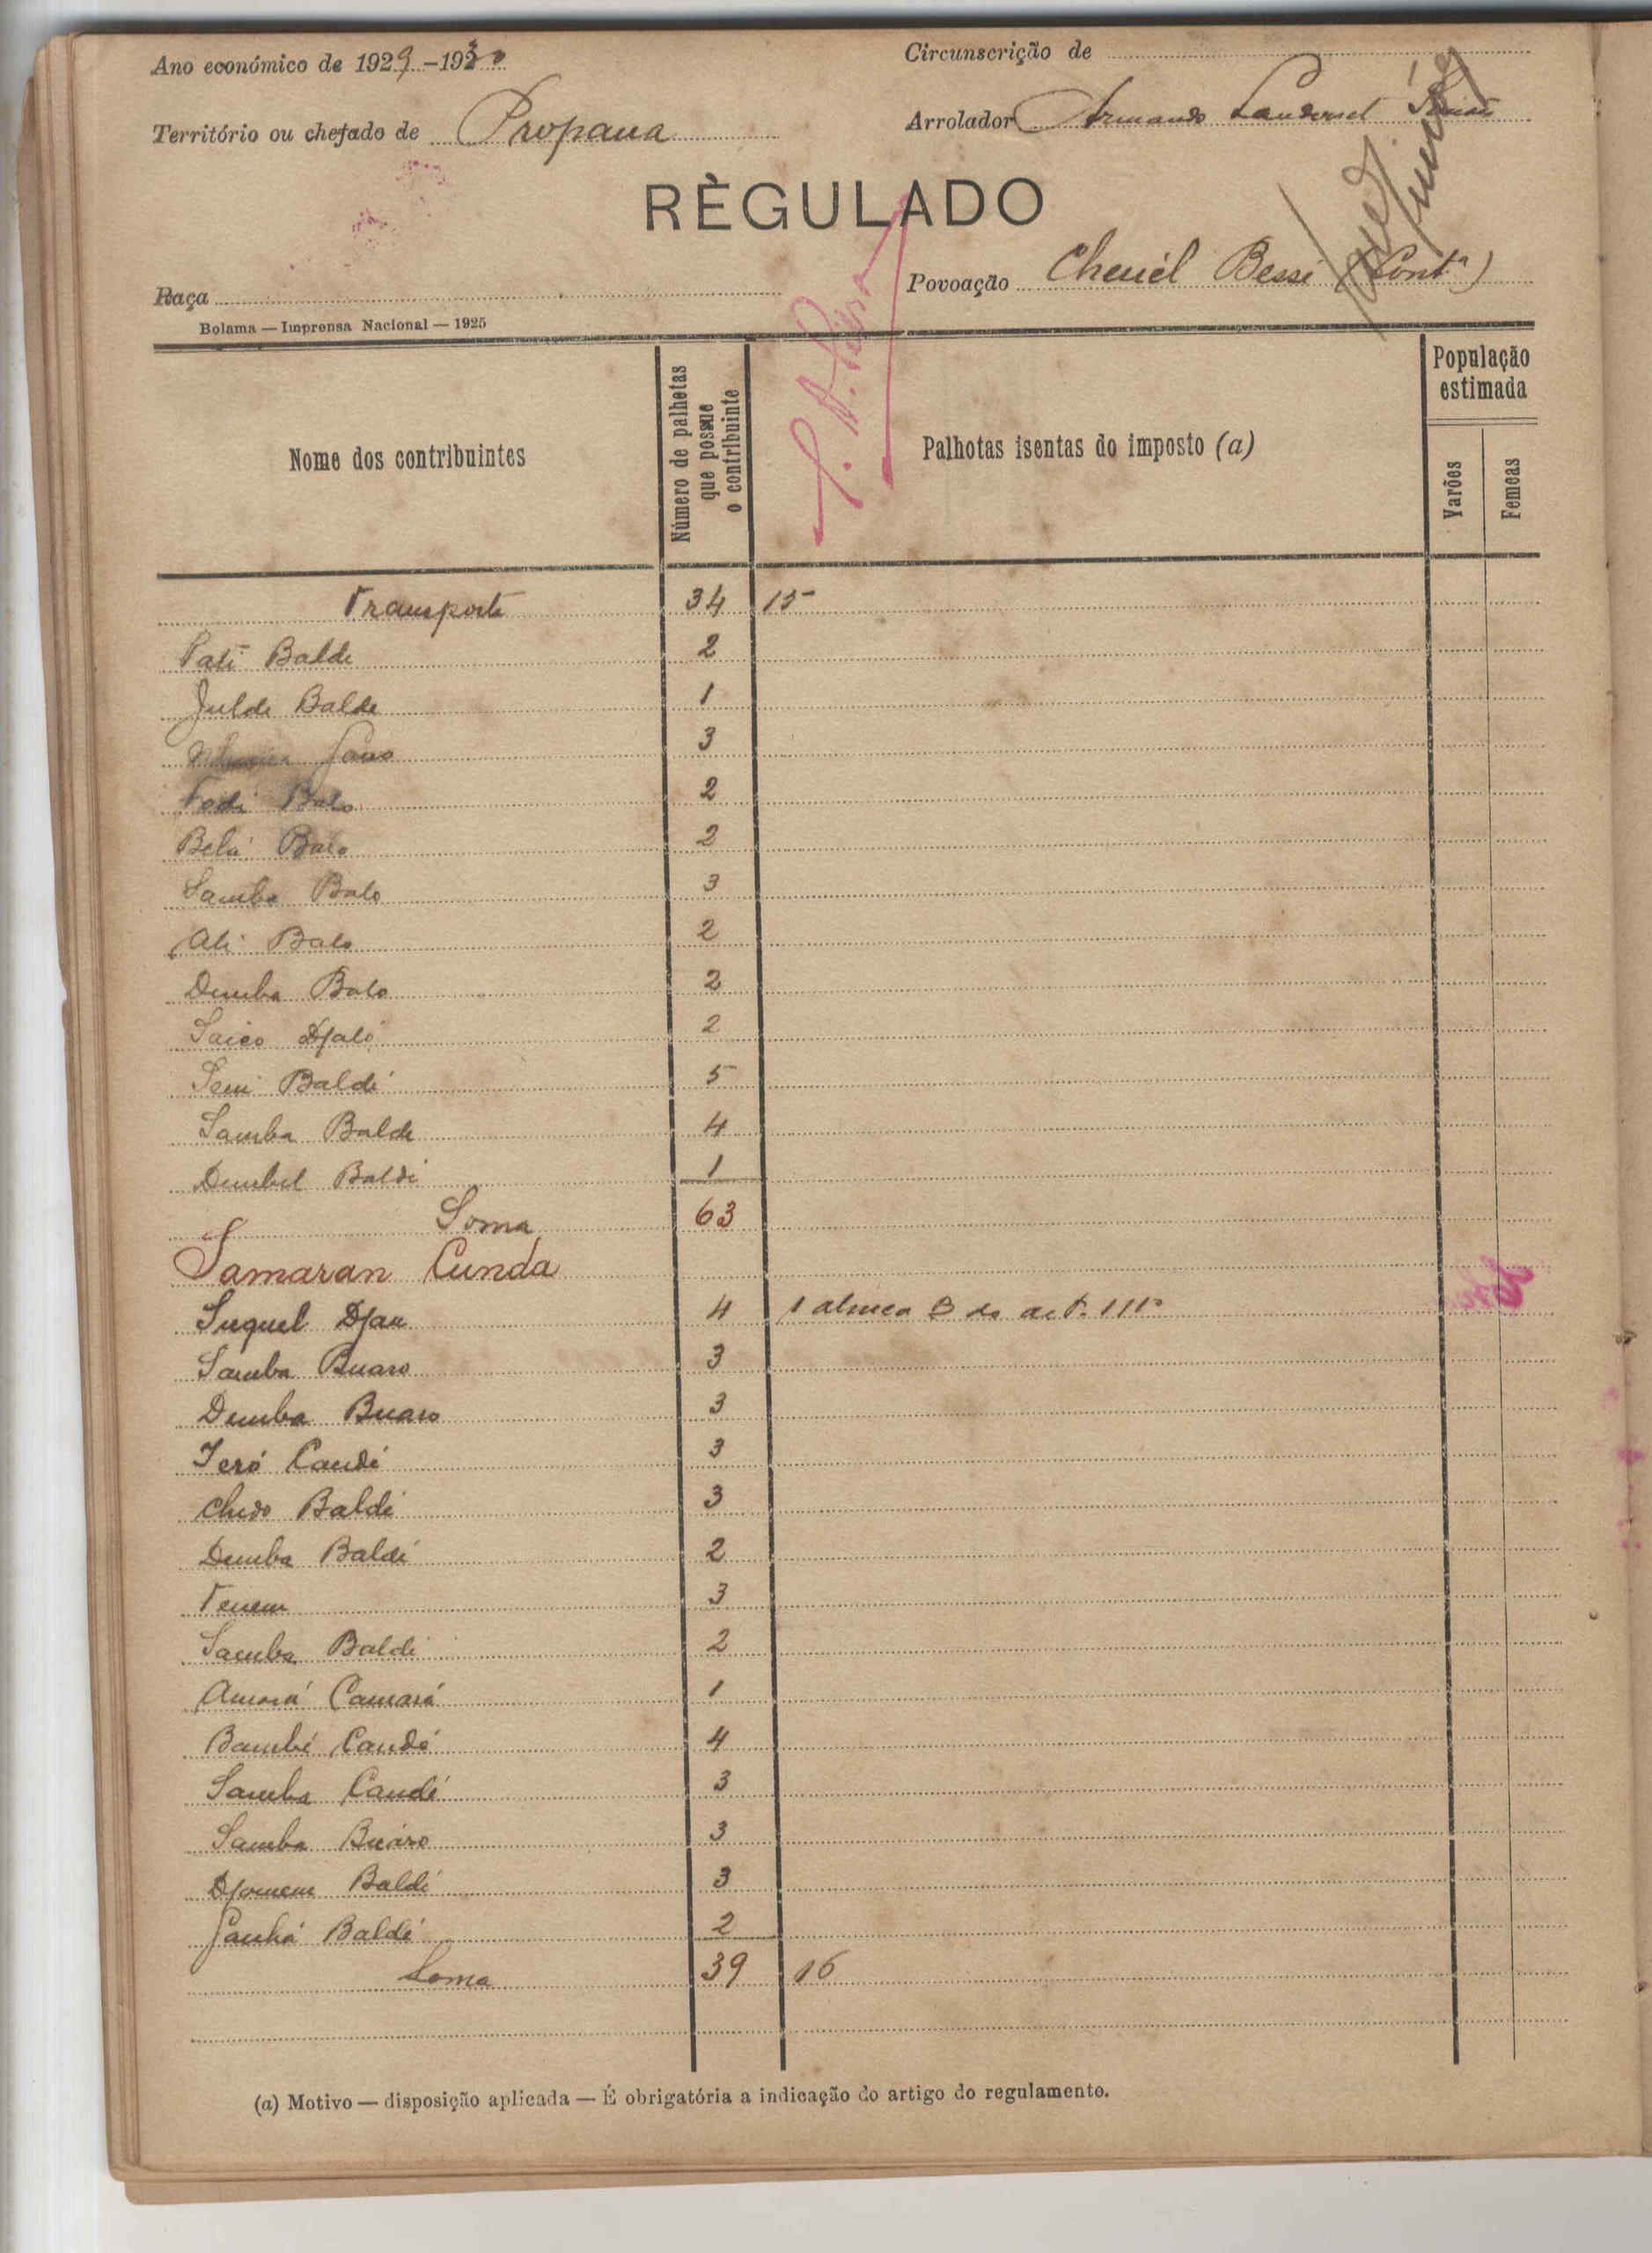 Ano económico de 1929-1930
Circunscrição de
Território ou chefado de Propana
Arrolador Armando
RÈGULADO
Raça
Povoação Cheuél Bessi (Cont.ª)
Bolama — Imprensa Nacional — 1925
Nome dos contribuintes
Número de palhetas que possue o contribuinte
Palhotas isentas do imposto (a)
População estimada
Varões
Femeas
Transporte 34 15
Pati Balde 2
Julde Balde 1
3
Fodi Balo 2
Belá Balo 2
Samba Balo 3
Ali Balo 2
Demba Balo 2
Saico Djaló 2
Seni Baldé 5
Samba Balde 4
Dembel Baldé 1
Soma 63
Samaran Cunda
Suquel Djau 4 1 alinea B do art. 111º
Samba Buaro 3
Demba Buaro 3
Ieró Candé 3
Chedo Baldé 3
Demba Baldé 2
Tenem 3
Samba Baldé 2
Amará Camará 1
Bambé Candé 4
Samba Candé 3
Samba Buáro 3
Djomem Baldé 3
Baldé 2
Soma 39 16
(a) Motivo — disposição aplicada — É obrigatória a indicação do artigo do regulamento.